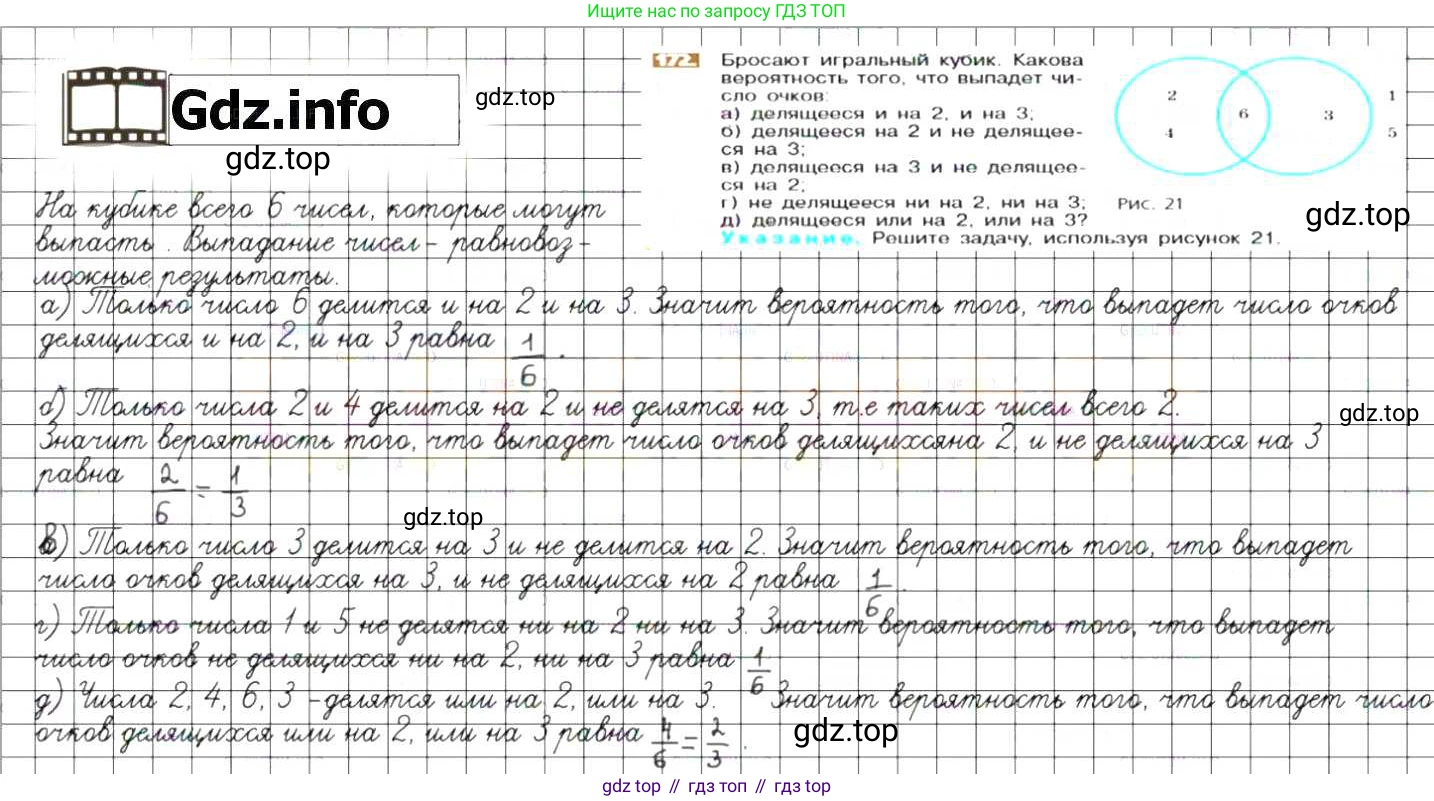 Ищите нас по запросу ГДЗ ТОП
Gdz.info
gdz.top
gdz.top
172.
Бросают игральный кубик. Какова
вероятность того, что выпадет чи-
сло очков:
а) делящееся и на 2, и на 3;
б) делящееся на 2 и не делящее-
ся на 3;
в) делящееся на 3 и не делящее-
ся на 2;
г) не делящееся ни на 2, ни на 3;
д) делящееся или на 2, или на 3?
Указание. Решите задачу, используя рисунок 21.
2
4
6
3
1
5
Рис. 21
gdz.top
На кубике всего 6 чисел, которые могут
выпасть. Выпадание чисел - равновоз-
можные результаты.
а) Только число 6 делится и на 2 и на 3. Значит вероятность того, что выпадет число очков
делящихся и на 2, и на 3 равна 1/6.
б) Только числа 2 и 4 делится на 2 и не делятся на 3, т.е таких чисел всего 2.
gdz.top
Значит вероятность того, что выпадет число очков делящихсяна 2, и не делящихся на 3
равна 2/6 = 1/3
gdz.top
в) Только число 3 делится на 3 и не делится на 2. Значит вероятность того, что выпадет
число очков делящихся на 3, и не делящихся на 2 равна 1/6.
г) Только числа 1 и 5 не делятся ни на 2 ни на 3. Значит вероятность того, что выпадет
число очков не делящихся ни на 2, ни на 3 равна 1/6
д) Числа 2, 4, 6, 3 - делятся или на 2, или на 3. Значит вероятность того, что выпадет число
очков делящихся или на 2, или на 3 равна 4/6 = 2/3.
gdz.top
gdz top // гдз топ // gdz top